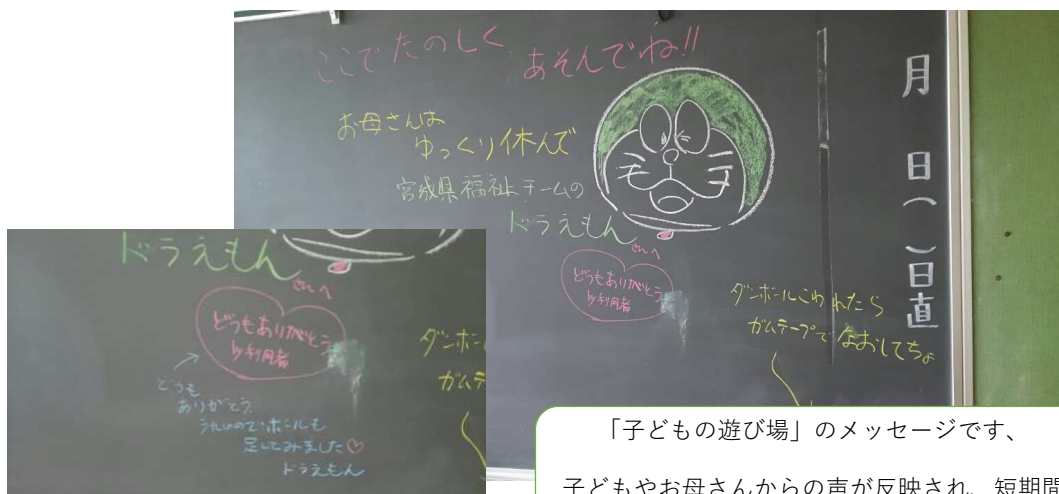 ここでたのしく、あそんでね!!
お母さんは
ゆっくり休んで
宮城県福祉チームの
ドラえもん
さんへ
どうもありがとう
by利用者
ダンボールこわれたら
ガムテープでなおしてちょ
月
日
(
)
日直
ドラえもん
さんへ
どうもありがとう
by利用者
どうも
ありがとう
うれしいのでボールも
足してみました♡
ドラえもん
ダンボー
ガムテ
「子どもの遊び場」のメッセージです、
子どもやお母さんからの声が反映され、短期間